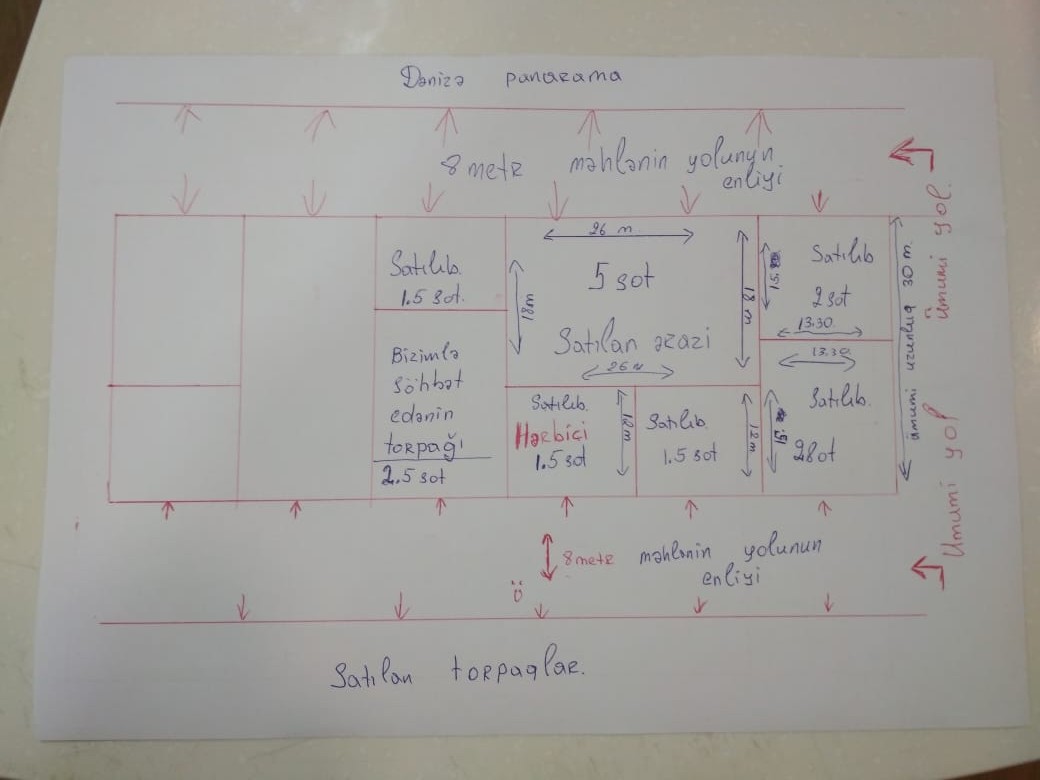 Dənizə panarama
8 metr məhlənin yolunun
enliyi
Ümumi yol.
Satılıb.
1.5 sot.
26 m
18m
5 sot
Satılan ərazi
26 m
18 m
15
Satılıb
2 sot
13.30.
ümumi uzunluq 30 m.
Bizimlə
söhbət
edənin
torpağı
2.5 sot
Satılıb.
Hərbiçi
1.5 sot
12m
Satılıb.
1.5 sot
12m
13.30.
15
Satılıb.
2 sot
Ümumi yol
8 metr məhlənin yolunun
enliyi
Satılan torpaqlar.